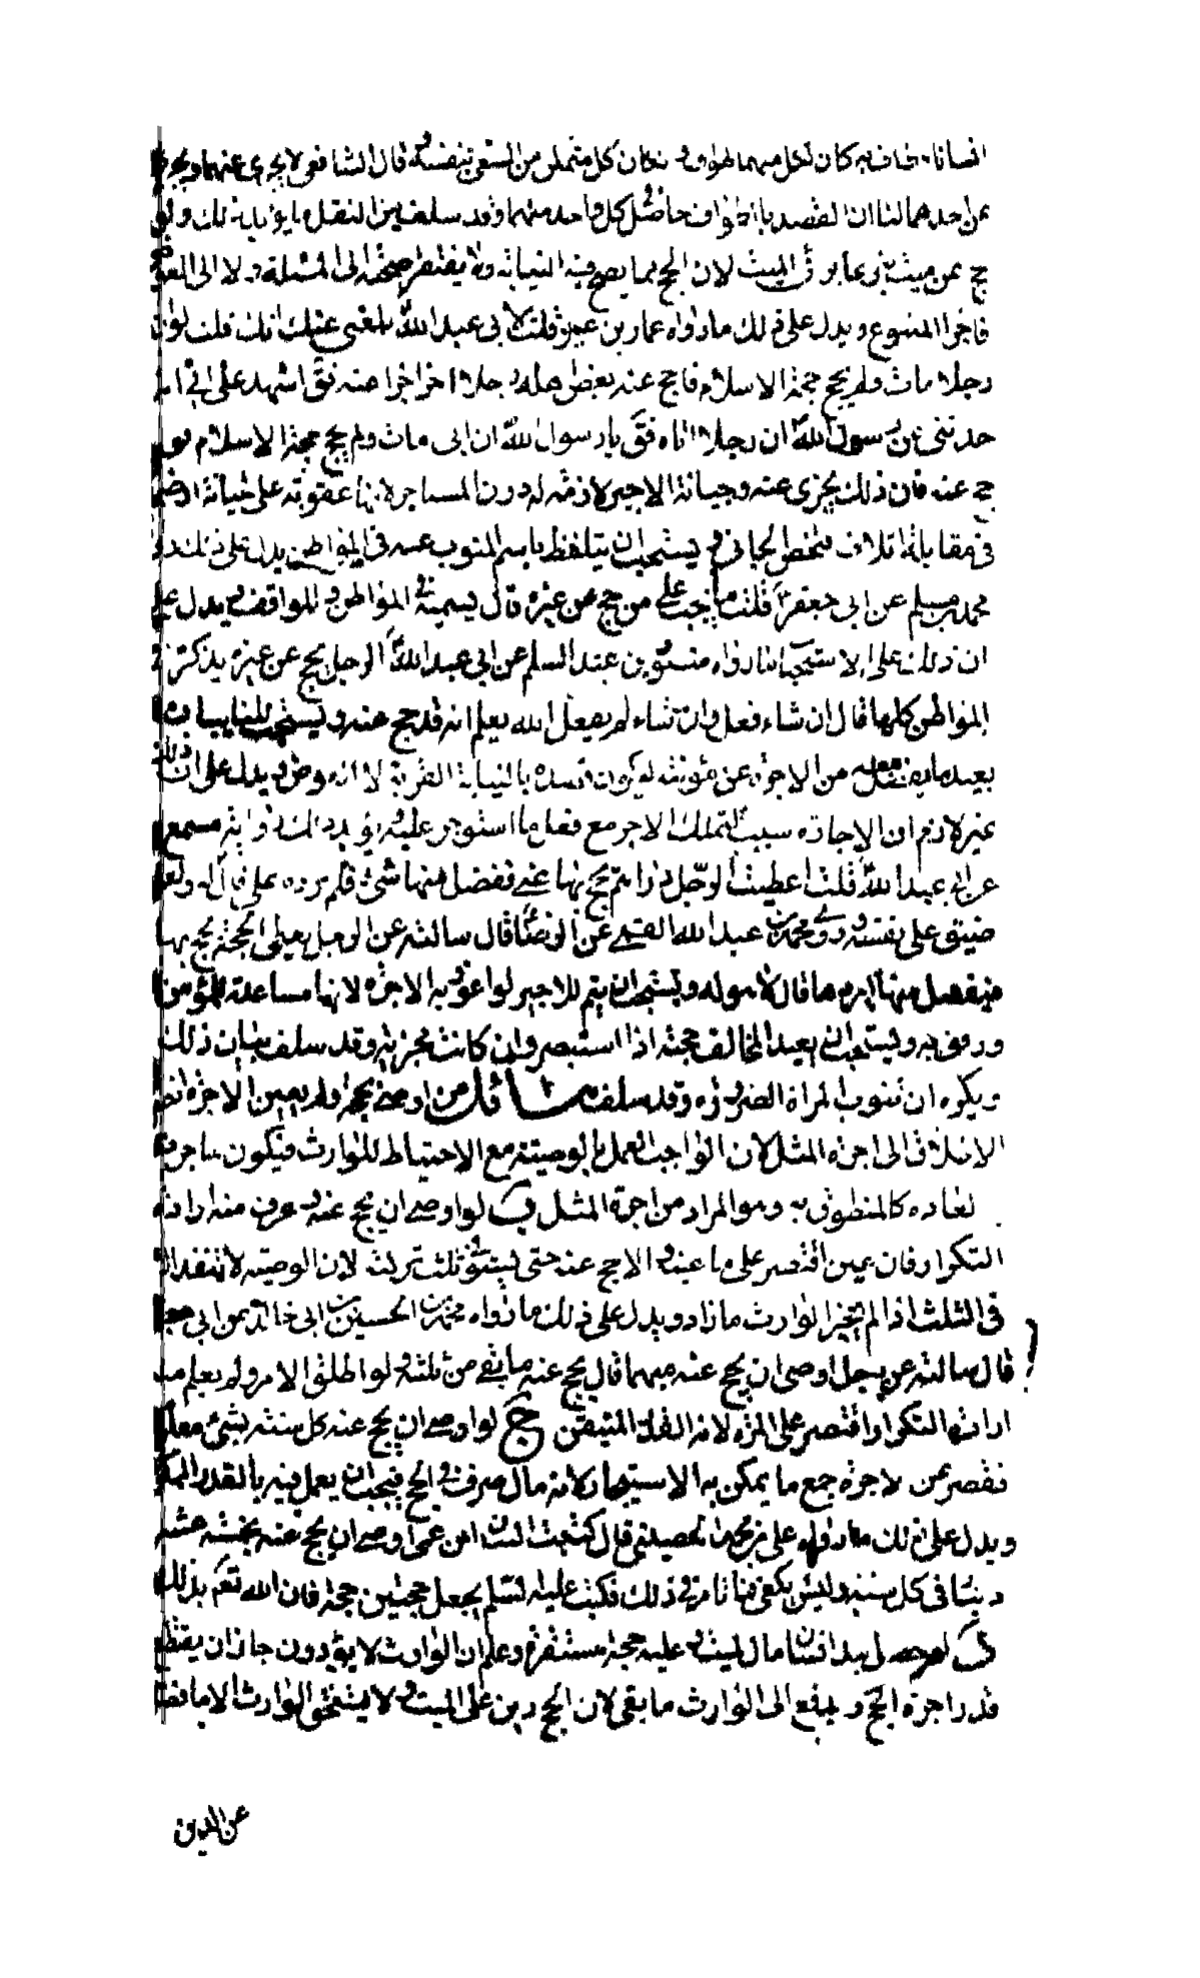 انسانا فطاف به كان لكل منهما طواف و كان كل متمكن من السعى بنفسه و قال الشافعى لا يجزى عنهما و يجزى
عن احدهما لنا ان القصد بالطواف حاصل لكل واحد منهما و قد سلف من النقل ما يؤيد ذلك و لو
حج عن ميت تبرعا برئ الميت لان الحج مما يصح فيه النيابة و لا يفتقر صحته الى المسئلة و لا الى العوض
فاجزا المتبوع و يدل على ذلك ما رواه عمار بن عمير قلت لابى عبد الله بلغنى عنك انك قلت لو ان
رجلا مات و لم يحج حجة الاسلام فاحج عنه بعض اهله رجلا اخر اجزا عنه فق اشهد على ابى انه
حدثنى عن رسول الله ان رجلا اتاه فق يا رسول الله ان ابى مات و لم يحج حجة الاسلام فق
حج عنه فان ذلك يجزى عنه و جناية الاجير لازمة له دون المستاجر لانها عقوبة على جناية او ضمان
فى مقابلة اتلاف فتختص الجانى و يستحب ان يتلفظ باسم المنوب عنه فى المواطن يدل على ذلك
محمد بن مسلم عن ابى جعفر قلت ما يجب على من حج عن غيره قال يسميه فى المواطن و المواقف و يدل على
ان ذلك على الاستحباب ما رواه مثنى بن عبد السلم عن ابى عبد الله الرجل يحج عن غيره يذكره فى
المواطن كلها قال ان شاء فعل و ان شاء لم يفعل الله يعلم انه قد حج عنه و يستحب للنايب ان
يعيد ما يفضل معه من الاجرة عن مؤنته ليكون قصده بالنيابة القربة لا انه و يدل على ان ذلك
غير لازم ان الاجارة سبب لتملك الاجر مع فعل ما استوجر عليه و يؤيد ذلك رواية مسمع
عن ابى عبد الله قلت اعطيت الرجل دراهم يحج بها عنى ففضل منها شئ فلم يرده على قال له و لعله
ضيق على نفسه و روى محمد بن عبد الله القمى عن الرضا قال سالته عن الرجل يعطى الحجة يحج بها
فيفضل منها ايرده ها قال لا هو له و يستحب ان يتم للاجير لو اعوز به الاجرة لانها مساعدة للمؤمن
و رفق به و يستحب ان يعيد المخالف حجته اذا استبصر و ان كانت مجزية و قد سلف بيان ذلك
و يكره ان تنوب المراة الصرورة و قد سلف مسائل من اوصى بحج و لم يعين الاجرة انصرف
الاطلاق الى اجرة المثل لان الواجب العمل بالوصية مع الاحتياط للوارث فيكون ما جرت
العادة كالمنطوق به و هو المراد من اجرة المثل ب لو اوصى ان يحج عنه و عرف منه ارادة
التكرار فان عين اقتصر على ما عينه و الا حج عنه حتى يستوفى ثلث تركته لان الوصية لا تنفذ الا
فى الثلث اذا لم يجز الوارث ما زاد و يدل على ذلك ما رواه محمد بن الحسين بن ابى خالد عن ابى جعفر
قال سالته عن رجل اوصى ان يحج عنه مبهما قال يحج عنه ما بقى من ثلثه و لو اطلق الامر و لم يعلم منه
ارادة التكرار اقتصر على المرة لانه القدر المتيقن ج لو اوصى ان يحج عنه كل سنة بشئ معلوم
فقصر عن الاجرة جمع ما يمكن به الاستيجار لانه مال صرف فى الحج فيجب ان يعمل فيه بالقدر الممكن
و يدل على ذلك ما رواه على بن محمد الحصينى قال كتبت اليه ان ابن عمى اوصى ان يحج عنه بخمسة عشر
دينارا فى كل سنة و ليس يكفى فما تامر فى ذلك فكتب عليه السلم يجعل حجتين حجة فان الله تعم بذلك
د لو حصل بيد انسان مال لميت و عليه حجة مستقرة و علم ان الوارث لا يؤدون جاز ان يقتطع
قدر اجرة الحج و يدفع الى الوارث ما بقى لان الحج دين على الميت و لا يستحق الوارث الا ما فضل
عن الدين